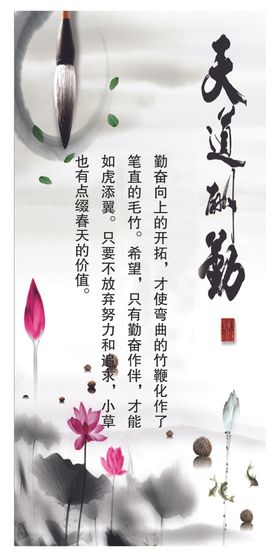 天道酬勤
勤奋向上的开拓，才使弯曲的竹鞭化作了
笔直的毛竹。希望，只有勤奋作伴，才能
如虎添翼。只要不放弃努力和追求，小草
也有点缀春天的价值。